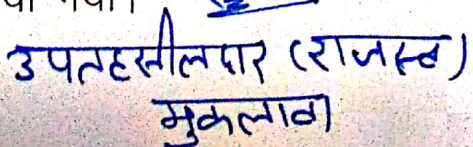 उपतहसीलदार (राजस्व)
मुकलावा